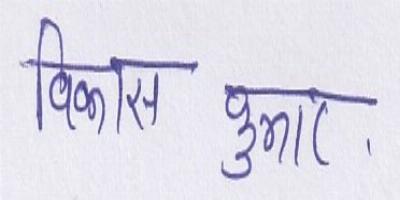 विकास कुमार.